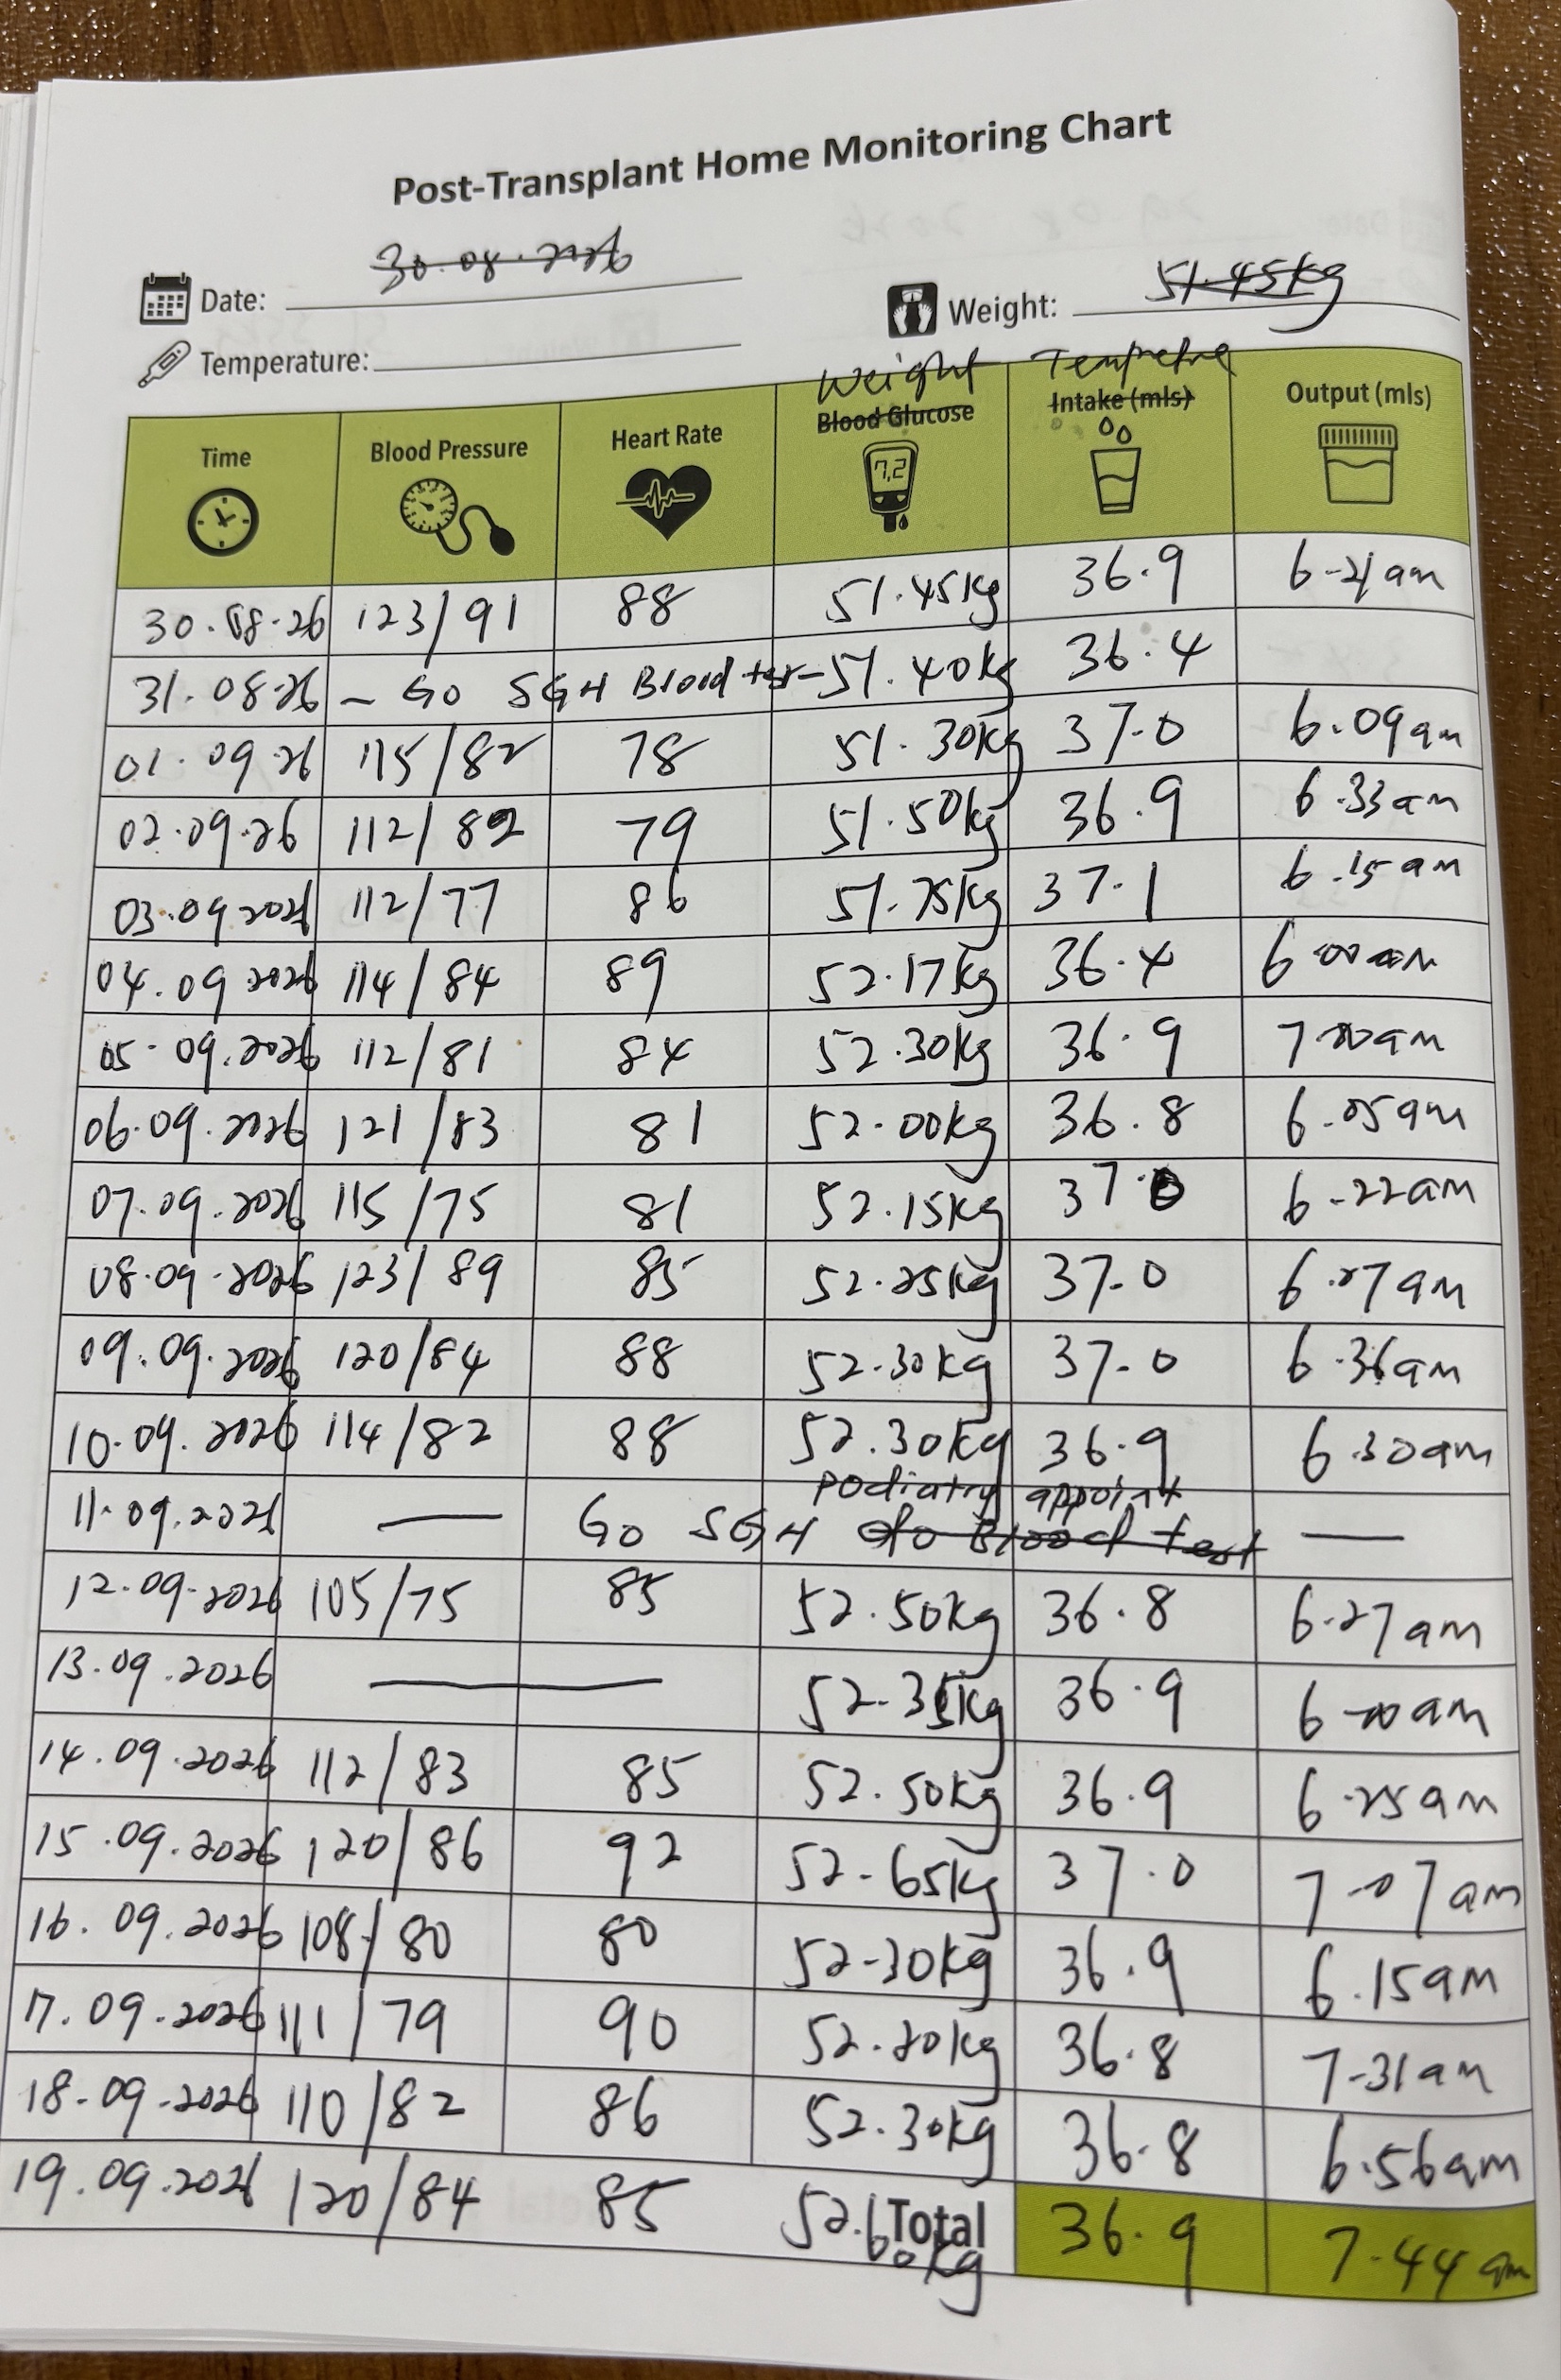 Post-Transplant Home Monitoring Chart
Date: 30.08.2026
Weight: 51.45kg
Temperature:
Time Blood Pressure Heart Rate Weight Blood Glucose Intake (mls) Output (mls)
7,2
30.08.26 123/91 88 51.45kg 36.9 6-21am
31.08.26 - Go SGH Blood 51.40kg 36.4
01.09.26 115/82 78 51.30kg 37.0 6.09am
02.09.26 112/82 79 51.50kg 36.9 6.33am
03.09 2026 112/77 86 51.75kg 37.1 6.15am
04.09 2026 114/84 89 52.17kg 36.4 6
05-09.2026 112/81 84 52.30kg 36.9 7
06.09.2026 121/83 81 52.00kg 36.8 6.05am
07.09.2026 115/75 81 52.15kg 37.0 6-22am
08.09-2026 123/89 85 52.25kg 37.0 6.27am
09.09.2026 120/84 88 52.30kg 37.0 6.36am
10.09.2026 114/82 88 52.30kg 36.9 6.30am
podiatry appoint
11.09.2026 — Go SGH do Blood test —
12.09.2026 105/75 85 52.50kg 36.8 6-27am
13.09.2026 — 52.35kg 36.9 6-00am
14.09.2026 112/83 85 52.50kg 36.9 6.25am
15.09.2026 120/86 92 52-65kg 37.0 7-07am
16.09.2026 108/80 80 52-30kg 36.9 6.15am
17.09.2026 111/79 90 36.8 7-31am
18-09-2026 110/82 86 52.30kg 36.8 6.56am
19.09.2026 120/84 85 52.60kg Total 36.9 7.44am